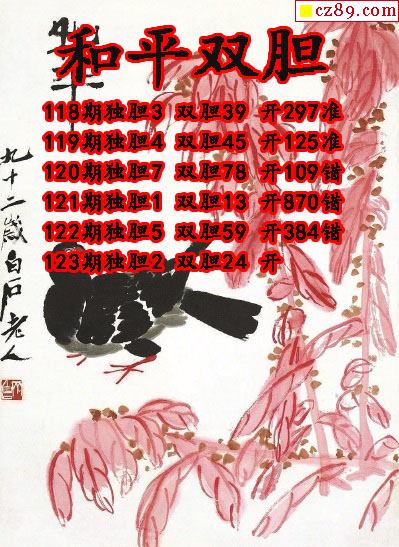 cz89.com
和平双胆
118期独胆3 双胆39 开297准
119期独胆4 双胆45 开125准
120期独胆7 双胆78 开109错
121期独胆1 双胆13 开870错
122期独胆5 双胆59 开384错
123期独胆2 双胆24 开
九十二岁白石老人